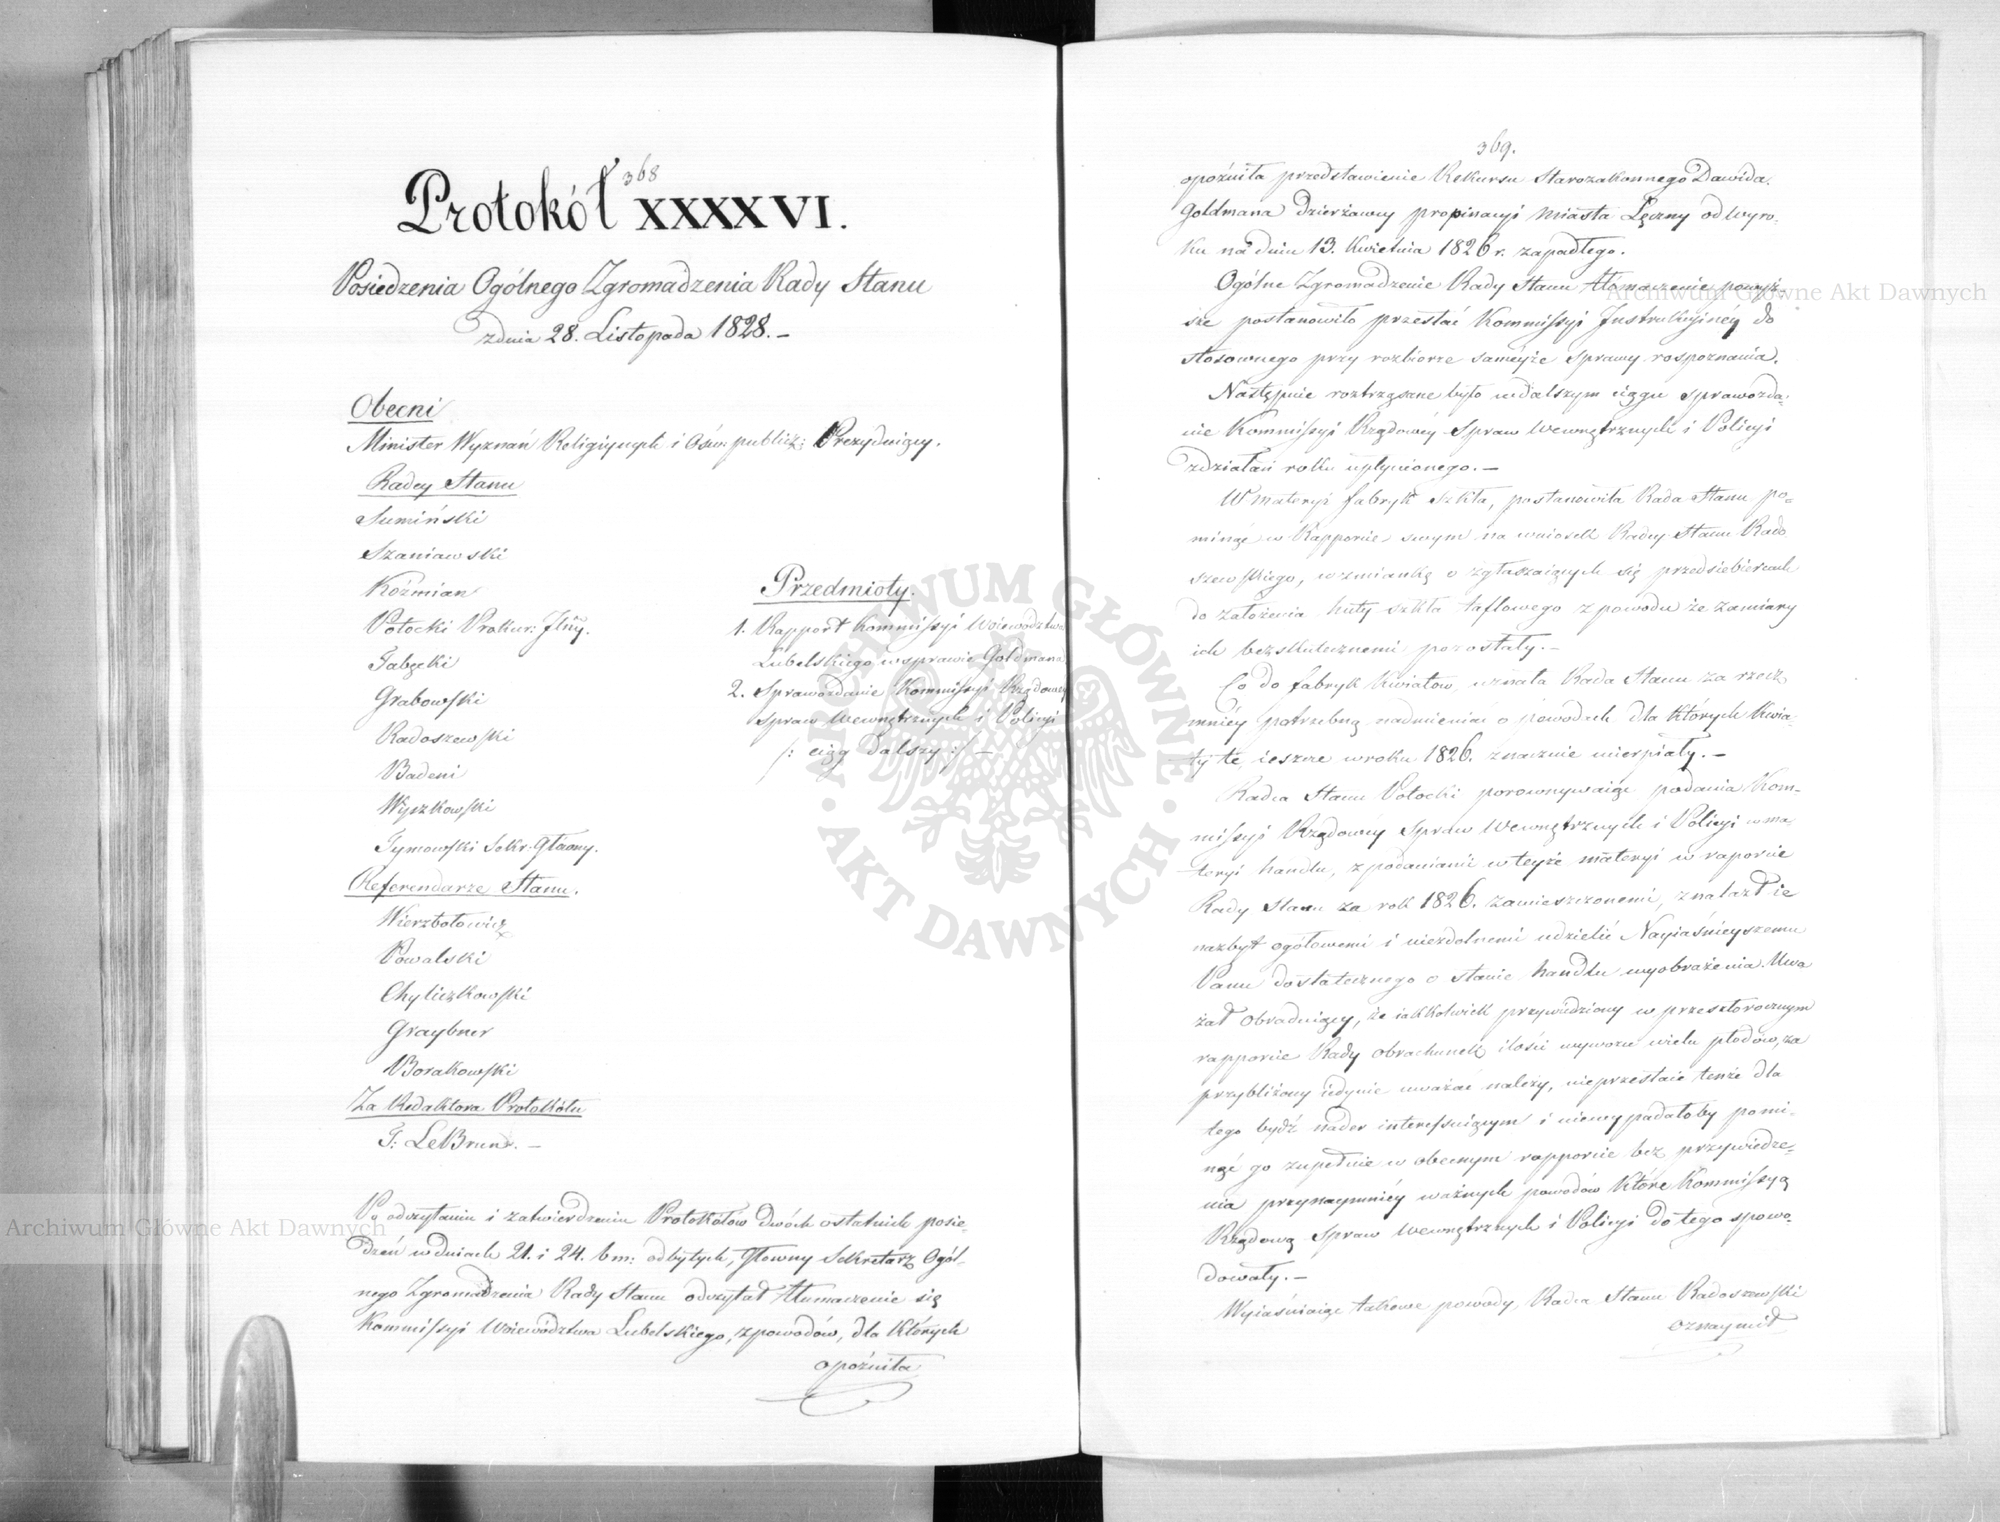 368
Protokół XXXXVI.
Posiedzenia Ogólnego Zgromadzenia Rady Stanu
z dnia 28. Listopada 1828. –
Obecni
Minister Wyznań Religiynych i Ośw: publicz: Prezyduiący.
Radcy Stanu
Sumiński
Szaniawski
Koźmian
Potocki Prokur: Jlny.
Tabęcki
Grabowski
Radoszewski
Badeni
Wyczkowski
Tymowski Sekr. Główny.
Referendarze Stanu.
Wierzbołowicz
Powalski
Chyliczkowski
Graybner
Borakowski
Za Redaktora Protokółu
T: LeBrund. –
Przedmioty.
1. Rapport Kommissyi Woiewództwa
Lubelskiego w sprawie Goldmana
2. Sprawozdanie Kommissyi Rządowey
Spraw Wewnętrznych i Policyi
/: ciąg dalszy :/ –
Po odczytaniu i zatwierdzeniu Protokółów dwóch ostatnich posie-
dzeń w dniach 21. i 24. b m: odbytych, Głowny Sekretarz Ogól-
nego Zgromadzenia Rady Stanu odczytał tłumaczenie się
Kommissyi Woiewództwa Lubelskiego, z powodów, dla których
opóźniła
369.
opóźniła przedstawienie Rekursu Starozakonnego Dawida
Goldmana dzierżawcy propinacyi Miasta Łęczny od Wyro-
ku na dniu 13. Kwietnia 1826 r. zapadłego.
Ogólne Zgromadzenie Rady Stanu tłómaczenie powyż-
sze postanowiło przesłać Kommissyi Instrukcyiney do
stosownego przy rozbiorze sameyże sprawy rospoznania.
Następnie roztrząsane było w dalszym ciągu sprawozda-
nie Kommissyi Rządowey Spraw Wewnętrznych i Policyi
z działań roku upłynionego. –
W materyi fabryk szkła, postanowiła Rada Stanu po-
minąć w Rapporcie swym na wniosek Radcy Stanu Rado
szewskiego, wzmiankę o zgłaszaiących się przedsiębiercach
do założenia huty szkła taflowego z powodu że zamiary
ich bezskutecznemi pozostały. –
Co do fabryk Kwiatów, uznała Rada Stanu za rzecz
mniéy potrzebną nadmieniać o powodach dla których Kwia-
ty te, ieszcze w roku 1826. znacznie ucierpiały. –
Radca Stanu Potocki porównywaiąc podania Kom-
missyi Rządowéy Spraw Wewnętrznych i Policyi w ma-
teryi handlu, z podaniami w teyże materyi w raporcie
Rady Stanu za rok 1826. zamieszczonemi, znalazł ie
nazbyt ogółowemi i niezdolnemi udzielić Nayiaśnieyszemu
Panu dostatecznego o stanie handlu wyobrażenia. Uwa
żał Obraduiący, że iakkolwiek przywiedziony w przeszłorocznym
rapporcie Rady obrachunek ilości wywozu wielu płodów, za
przybliżony iedynie uważać należy, nieprzestaie tenże dla
tego bydź nader interessuiącym i niewypadałoby pomi-
nąć go zupełnie w obecnym rapporcie bez przywiedze-
nia przynaymniéy ważnych powodów które Kommissyą
Rządową Spraw Wewnętrznych i Policyi do tego spowo-
dowały. –
Wyiaśniaiąc takowe powody, Radca Stanu Radoszewski
oznaymił
Archiwum Główne Akt Dawnych
Archiwum Główne Akt Dawnych
ARCHIWUM GŁÓWNE
AKT DAWNYCH